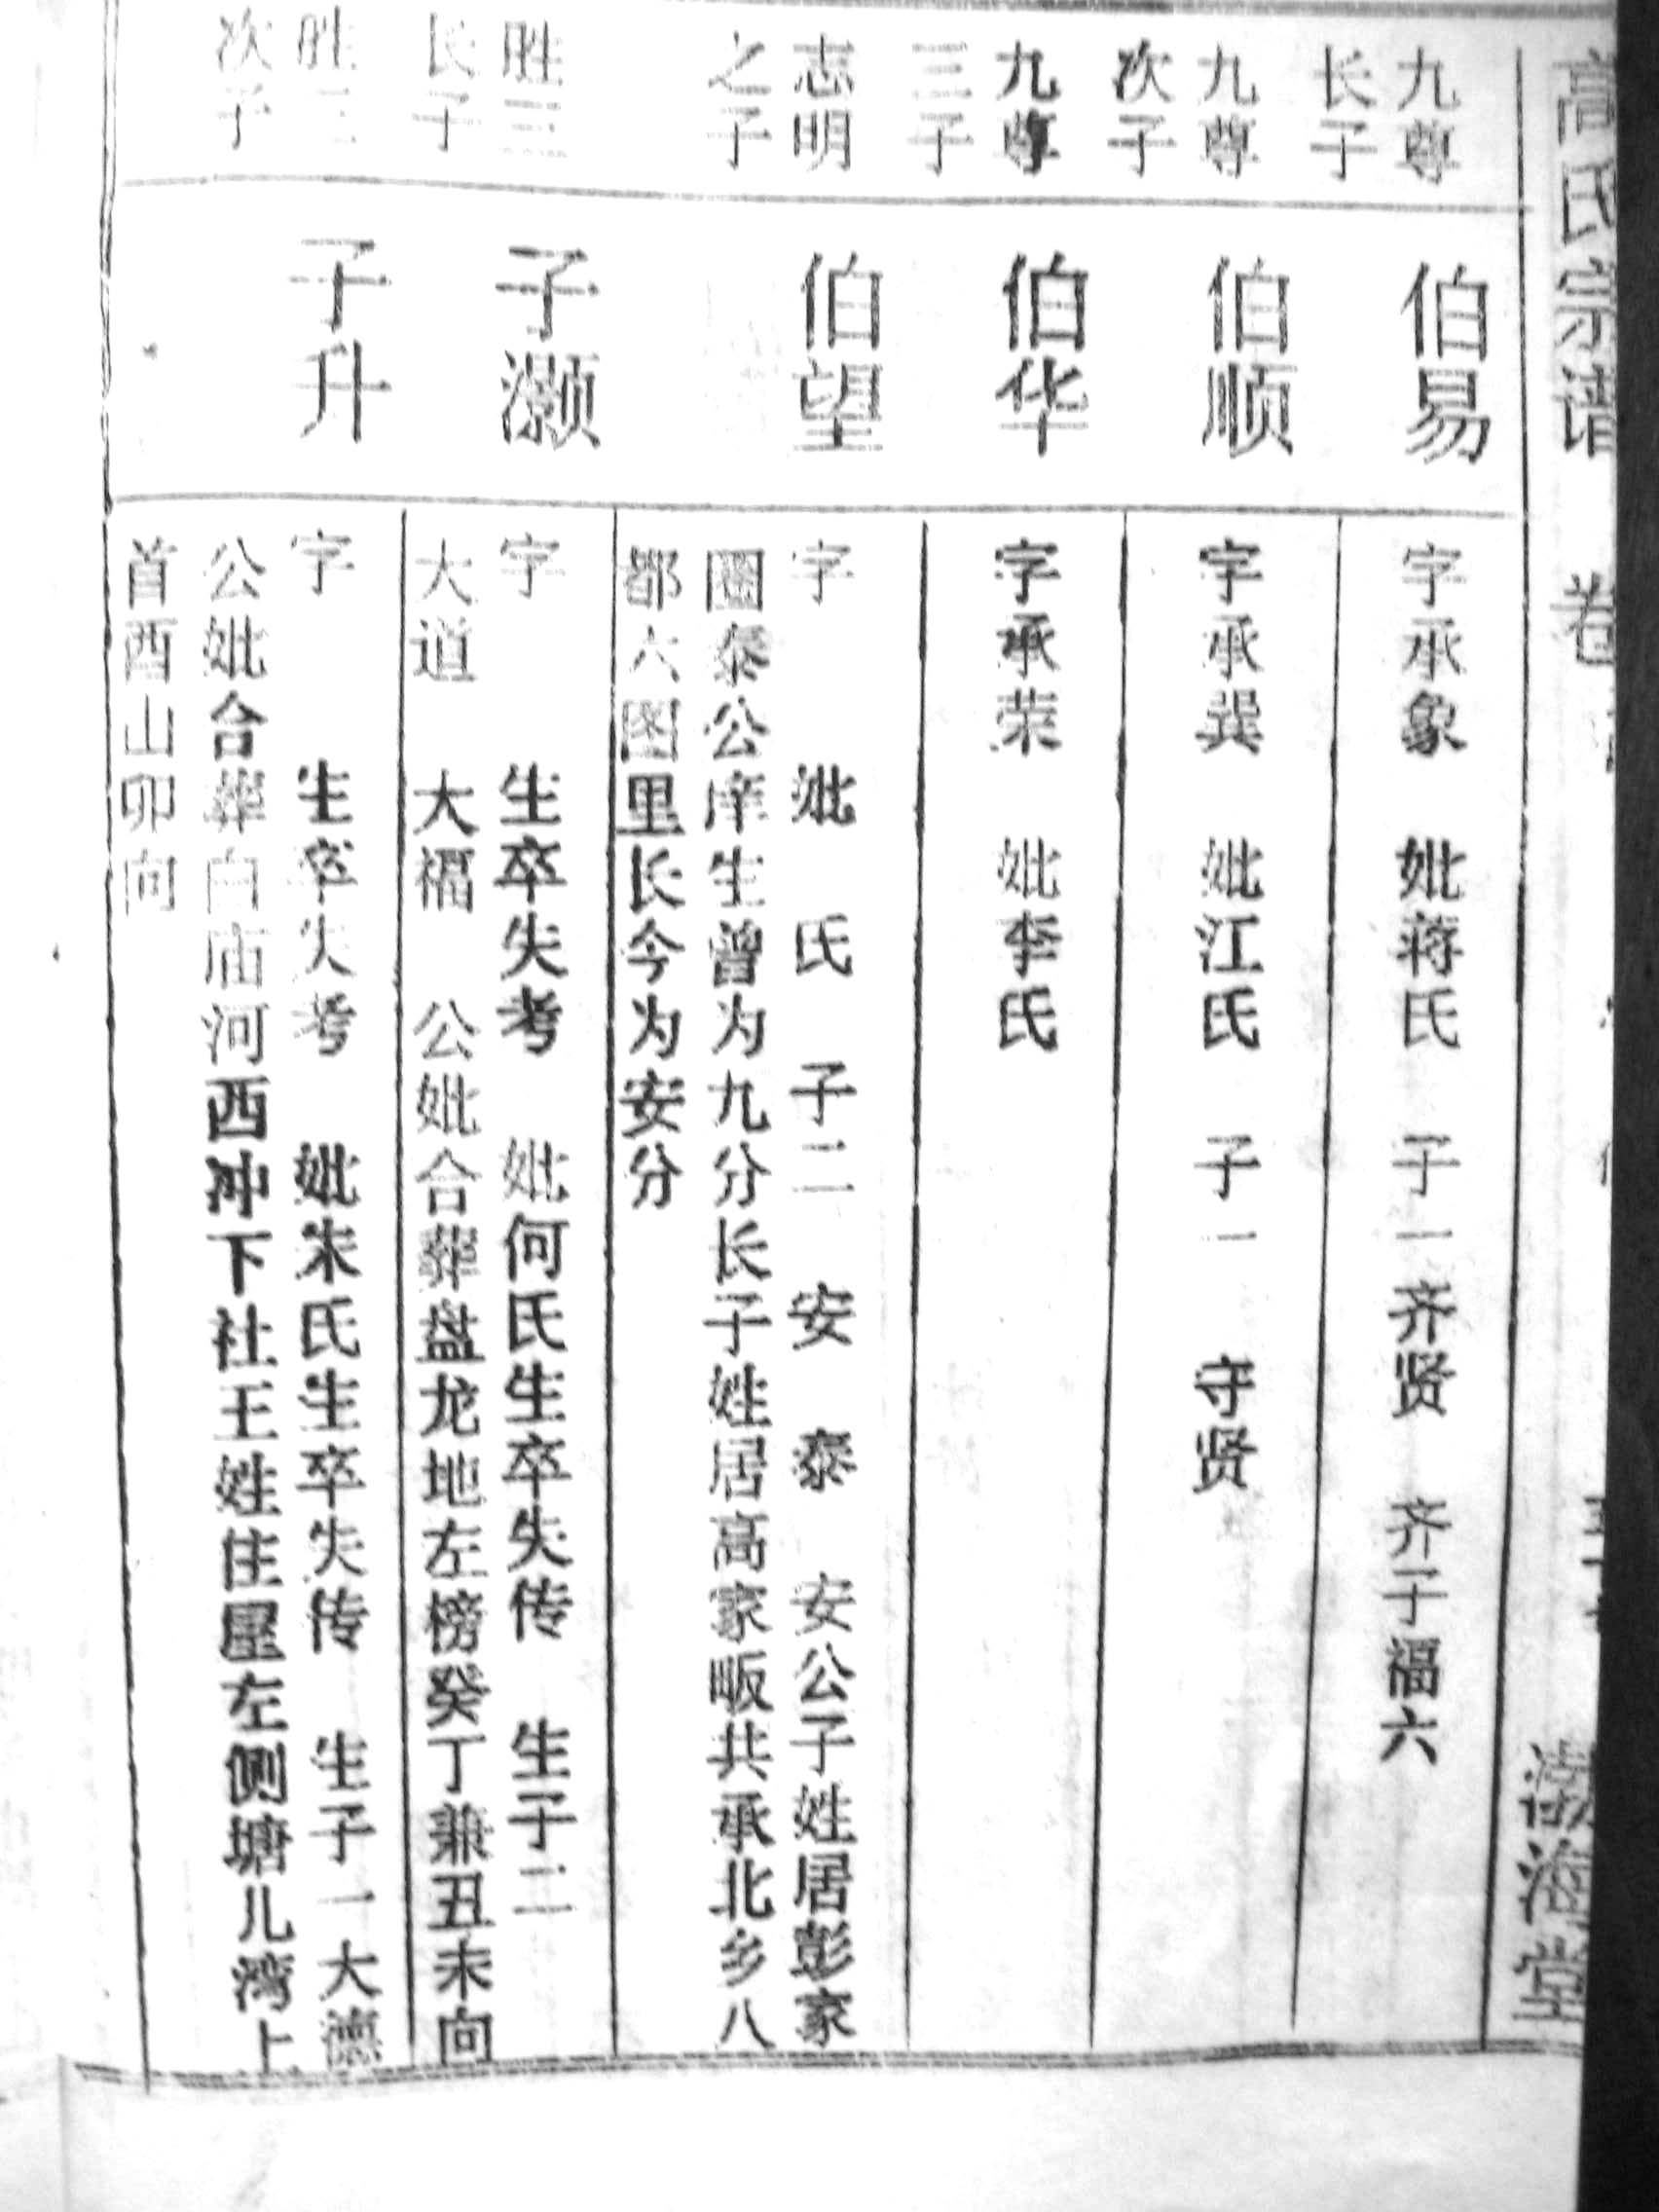 高氏宗谱 卷
渤海堂
九尊
长子
伯易
字承象 妣蒋氏 子一齐贤 齐子福六
九尊
次子
伯顺
字承巽 妣江氏 子一 守贤
九尊
三子
伯华
字承荣 妣李氏
志明
之子
伯望
字 妣 氏 子二 安 泰 安公子姓居彭家
圈泰公庠生曾为九分长子姓居高家畈共承北乡八
都六图里长今为安分
胜三
长子
子灏
字 生卒失考 妣何氏生卒失传 生子二
大道 大福 公妣合葬盘龙地左榜癸丁兼丑未向
胜三
次子
子升
字 生卒失考 妣朱氏生卒失传 生子一大德
公妣合葬白庙河西冲下社王姓住屋左侧塘儿湾上
首酉山卯向